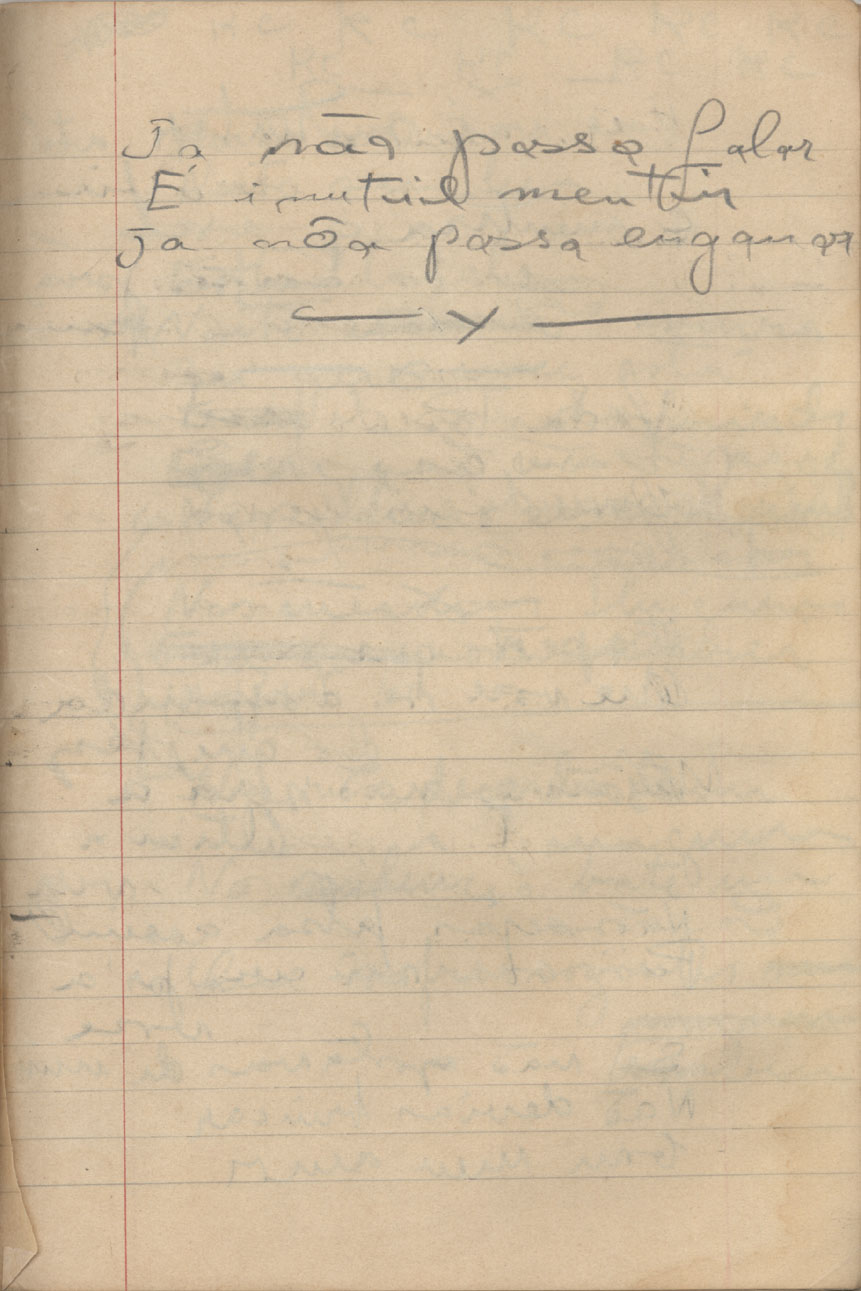 Ja não posso falar
É inutiil mentir
Ja nõa possa enganar